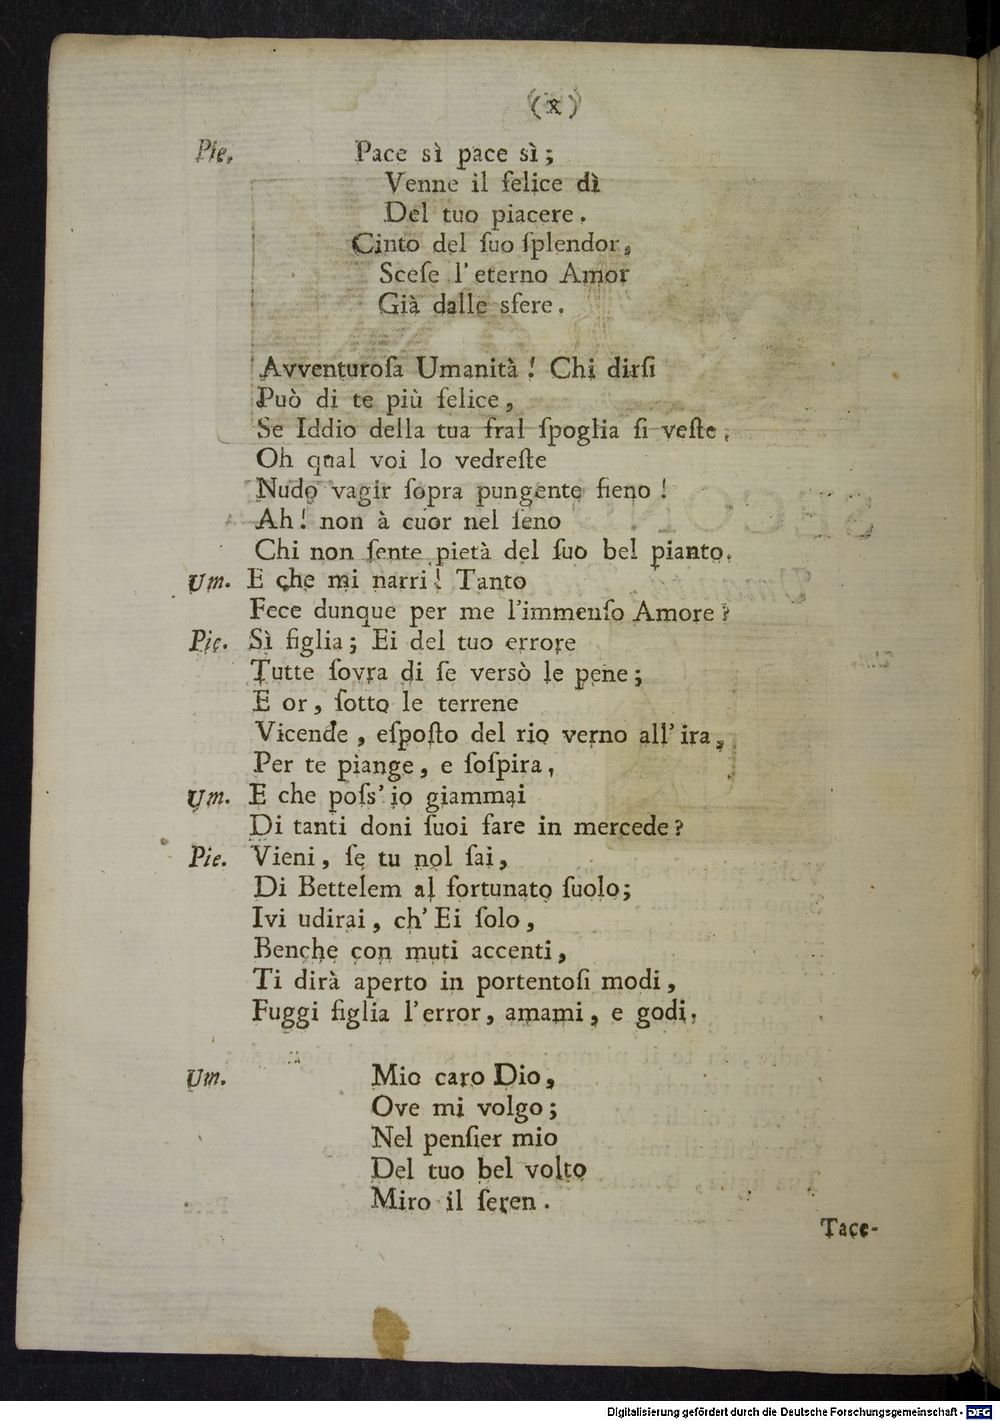 (x)
Pie. Pace sì pace sì;
Venne il felice dì
Del tuo piacere.
Cinto del ſuo ſplendor,
Sceſe l'eterno Amor
Già dalle sfere.
Avventuroſa Umanità! Chi dirſi
Può di te più felice,
Se Iddio della tua fral ſpoglia ſi veſte.
Oh qual voi lo vedreſte
Nudo vagir ſopra pungente fieno!
Ah! non à cuor nel ſeno
Chi non ſente pietà del ſuo bel pianto.
Um. E che mi narri! Tanto
Fece dunque per me l'immenſo Amore?
Pie. Sì figlia; Ei del tuo errore
Tutte ſovra di ſe versò le pene;
E or, ſotto le terrene
Vicende, eſpoſto del rio verno all'ira,
Per te piange, e ſoſpira,
Um. E che poſs'io giammai
Di tanti doni ſuoi fare in mercede?
Pie. Vieni, ſe tu nol ſai,
Di Bettelem al fortunato ſuolo;
Ivi udirai, ch'Ei ſolo,
Benche con muti accenti,
Ti dirà aperto in portentoſi modi,
Fuggi figlia l'error, amami, e godi.
Um. Mio caro Dio,
Ove mi volgo;
Nel penſier mio
Del tuo bel volto
Miro il ſeren.
Tace-
Digitalisierung gefördert durch die Deutsche Forschungsgemeinschaft - DFG